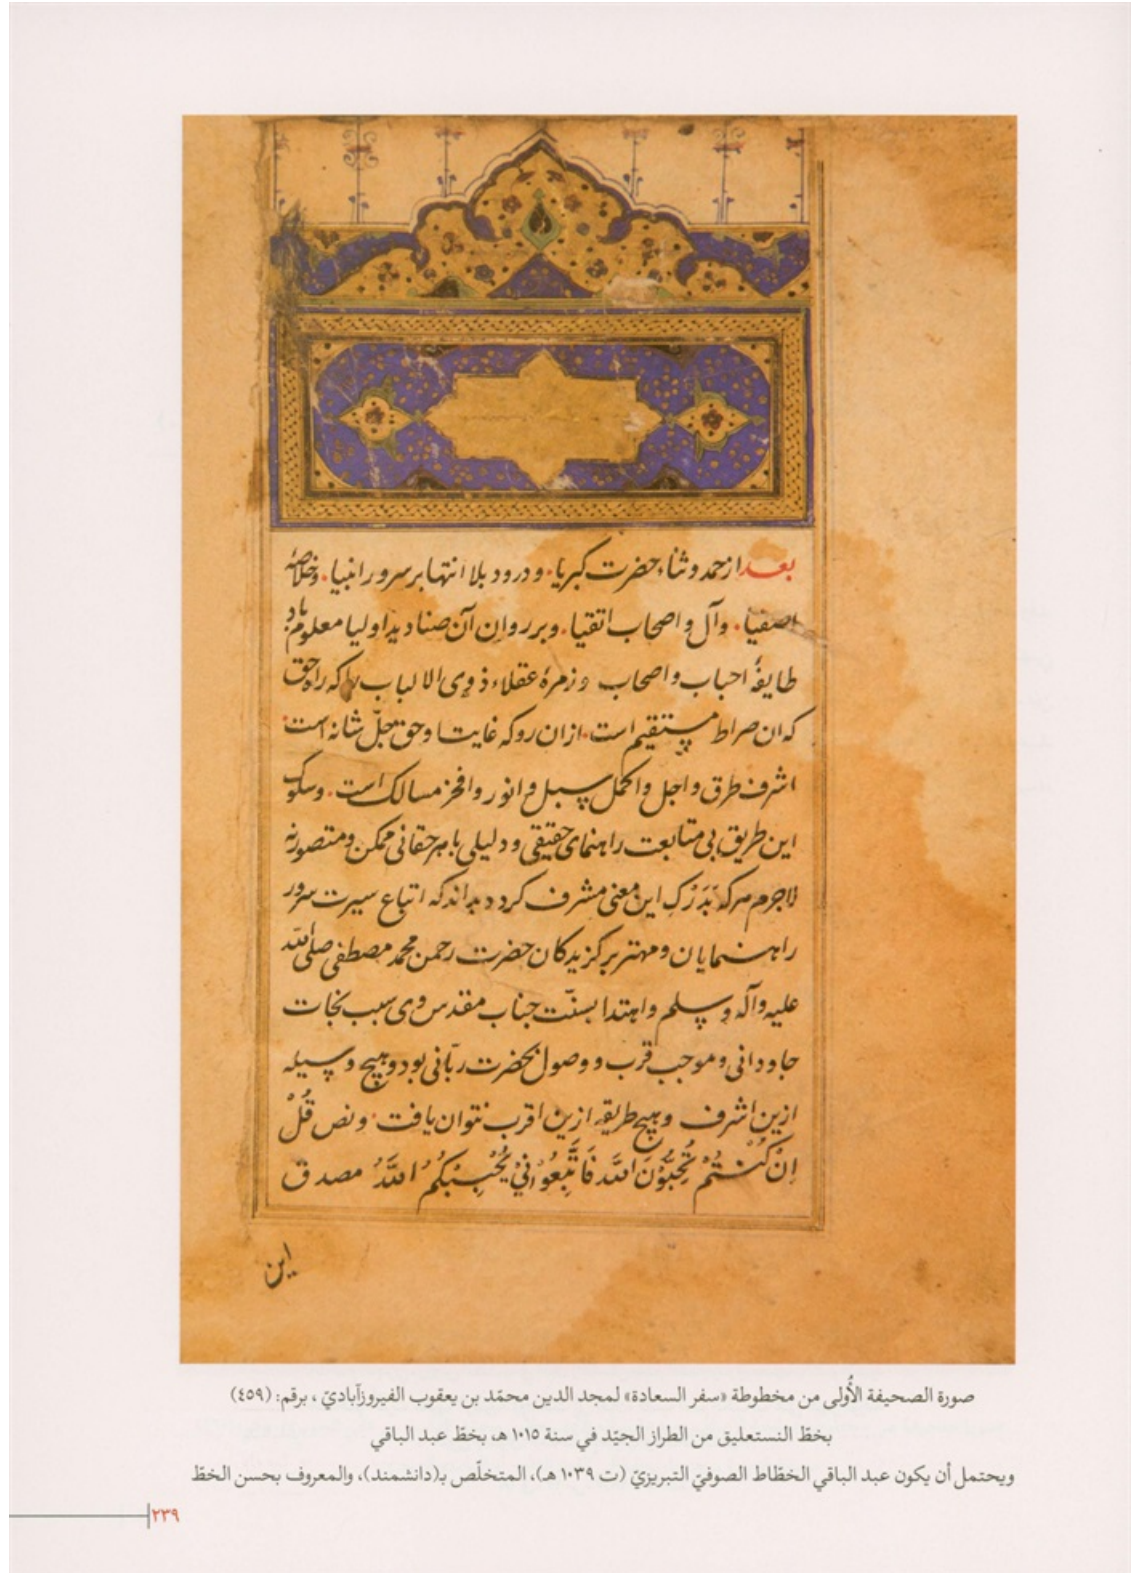 بعد از حمد و ثناء حضرت کبریا. و درود بلا انتها بر سرور انبیا. و خلاصهٔ
اصفیا. و آل و اصحاب اتقیا. و بر روان آن صنادید اولیا معلوم باد
طایفهٔ احباب و اصحاب و زمرهٔ عقلاء ذوی الالباب را که راه حق
که ان صراط مستقیم است. ازان رو که غایت او حق جلّ شانه است.
اشرف طرق و اجل و اکمل سبل و انور و افخر مسالک است. و سلوک
این طریق بی متابعت راهنمای حقیقی و دلیلی باهر حقانی ممکن و متصور نه
لاجرم هرکه بَدَرْکِ این معنی مشرف کردد بداند که اتباع سیرت سرور
راهنمایان و مهتر برکزیدکان حضرت رحمن محمد مصطفی صلی الله
علیه وآله وسلم و اهتدا بسنّت جناب مقدس وی سبب نجات
جاودانی و موجب قرب و وصول بحضرت ربّانی بود و هیچ وسیله
ازین اشرف و هیچ طریقه ازین اقرب نتوان یافت. و نص قُلْ
اِنْ کُنْتُمْ تُحِبُّوْنَ اللّٰهَ فَاتَّبِعُوْانِیْ یُحْبِبْکُمُ اللّٰهُ مصدق
این
صورة الصحيفة الأُولى من مخطوطة «سفر السعادة» لمجد الدين محمّد بن يعقوب الفيروزآباديّ ، برقم: (٤٥٩)
بخطّ النستعليق من الطراز الجيّد في سنة ١٠١٥ هـ، بخطّ عبد الباقي
ويحتمل أن يكون عبد الباقي الخطّاط الصوفيّ التبريزيّ (ت ١٠٣٩ هـ)، المتخلّص بـ(دانشمند)، والمعروف بحسن الخطّ
٢٣٩